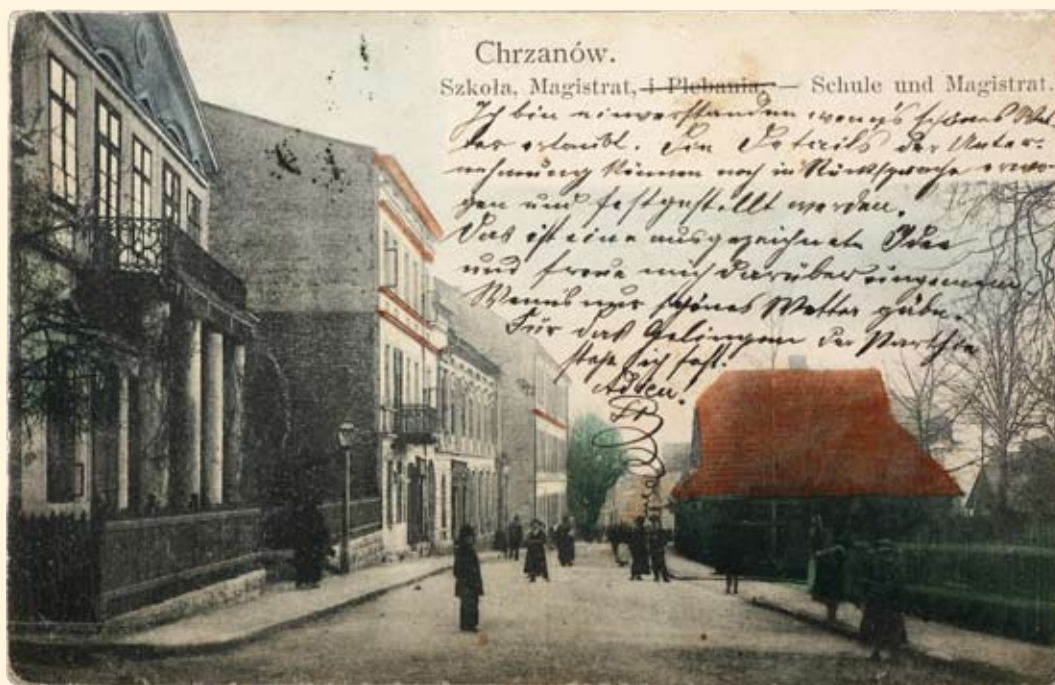 Chrzanów.
Szkoła, Magistrat, i Plebania. — Schule und Magistrat.
Ich bin einverstanden wenn's schönes Wet-
ter erlaubt. Die Details der Unter-
nehmung können noch in Rücksprache erwo-
gen und festgestellt werden.
Das ist eine ausgezeichnete Idee
und freue mich darüber ungemein.
Wenn's nur schönes Wetter gäbe.
Für das Gelingen der Parthie
stehe ich fest.
Adieu.